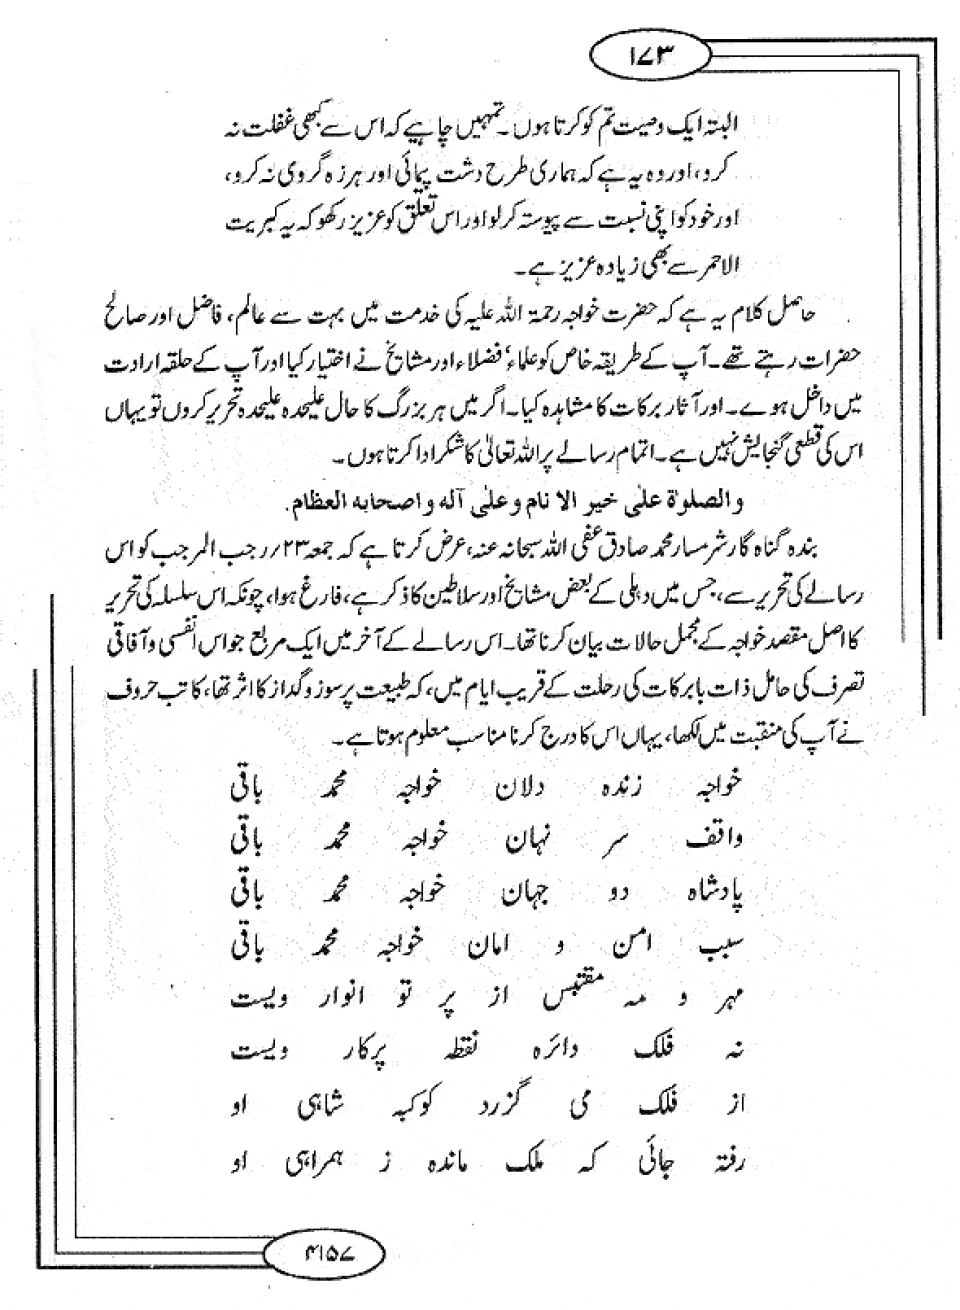 ۱۷۳
البتہ ایک وصیت تم کو کرتا ہوں۔ تمہیں چاہیے کہ اس سے کبھی غفلت نہ
کرو، اور وہ یہ ہے کہ ہماری طرح دشت پیمائی اور ہرزہ گردی نہ کرو،
اور خود کو اپنی نسبت سے پیوستہ کرلو اور اس تعلق کو عزیز رکھو کہ یہ کبریت
الاحمر سے بھی زیادہ عزیز ہے۔
حاصل کلام یہ ہے کہ حضرت خواجہ رحمۃ اللہ علیہ کی خدمت میں بہت سے عالم، فاضل اور صالح
حضرات رہتے تھے۔ آپ کے طریقہ خاص کو علماء، فضلاء اور مشایخ نے اختیار کیا اور آپ کے حلقہ ارادت
میں داخل ہوے۔ اور آثار برکات کا مشاہدہ کیا۔ اگر میں ہر بزرگ کا حال علیحدہ علیحدہ تحریر کروں تو یہاں
اس کی قطعی گنجایش نہیں ہے۔ اتمام رسالے پر اللہ تعالیٰ کا شکر ادا کرتا ہوں۔
والصلوة علیٰ خیر الا نام و علیٰ آله و اصحابه العظام۔
بندہ گناہ گار شرمسار محمد صادق عفی اللہ سبحانہ عنہ، عرض کرتا ہے کہ جمعہ ۲۳/رجب المرجب کو اس
رسالے کی تحریر سے، جس میں دہلی کے بعض مشایخ اور سلاطین کا ذکر ہے، فارغ ہوا، چونکہ اس سلسلہ کی تحریر
کا اصل مقصد خواجہ کے مجمل حالات بیان کرنا تھا۔ اس رسالے کے آخر میں ایک مربع جو اس انفسی و آفاقی
تصرف کی حامل ذات بابرکات کی رحلت کے قریب ایام میں، کہ طبیعت پر سوز و گداز کا اثر تھا، کاتب حروف
نے آپ کی منقبت میں لکھا، یہاں اس کا درج کرنا مناسب معلوم ہوتا ہے۔
خواجہ زندہ دلان خواجہ محمد باقی
واقف سر نہان خواجہ محمد باقی
پادشاہ دو جہان خواجہ محمد باقی
سبب امن و امان خواجہ محمد باقی
مہر و مہ مقتبس از پر تو انوار ویست
نہ فلک دائرہ نقطہ پرکار ویست
از فلک می گزرد کوکبہ شاہی او
رفتہ جائی کہ ملک ماندہ ز ہمراہی او
۴۱۵۷